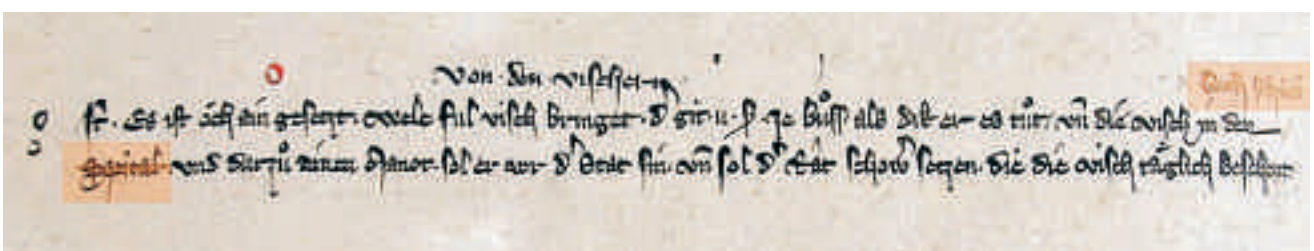 Von den vischern
Es ist och ein gesetzt. wele ful visch bringet. d᾽ git .ij. ze buͦss als dik er es tuͦt. vn̄ die visch in den
spital vnd dar zuͦ einen manot sol er vor d᾽ stat sin. vn̄ sol d᾽ rat schow᾽ setzen. die die visch taͤglich beschow